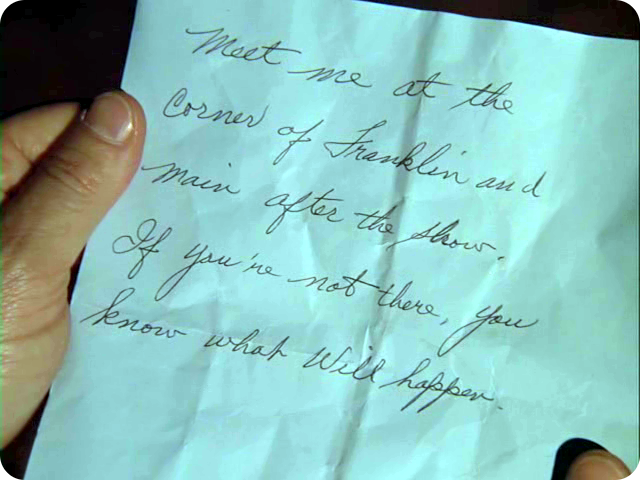 Meet me at the
Corner of Franklin and
main after the show.
If you're not there, you
know what Will happen.